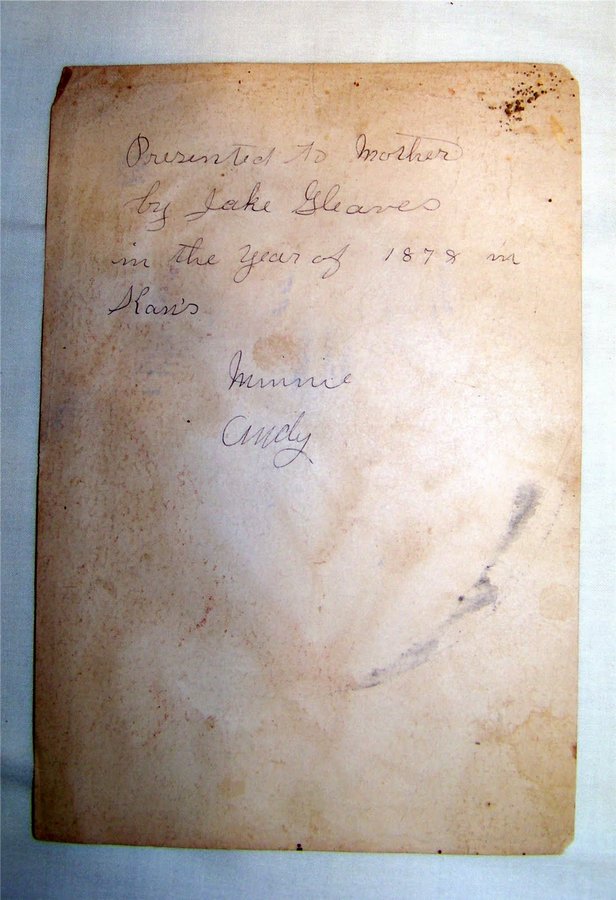 Presented to Mother
by Jake Gleaves
in the Year of 1878 in
Kan's
Minnie
Andy